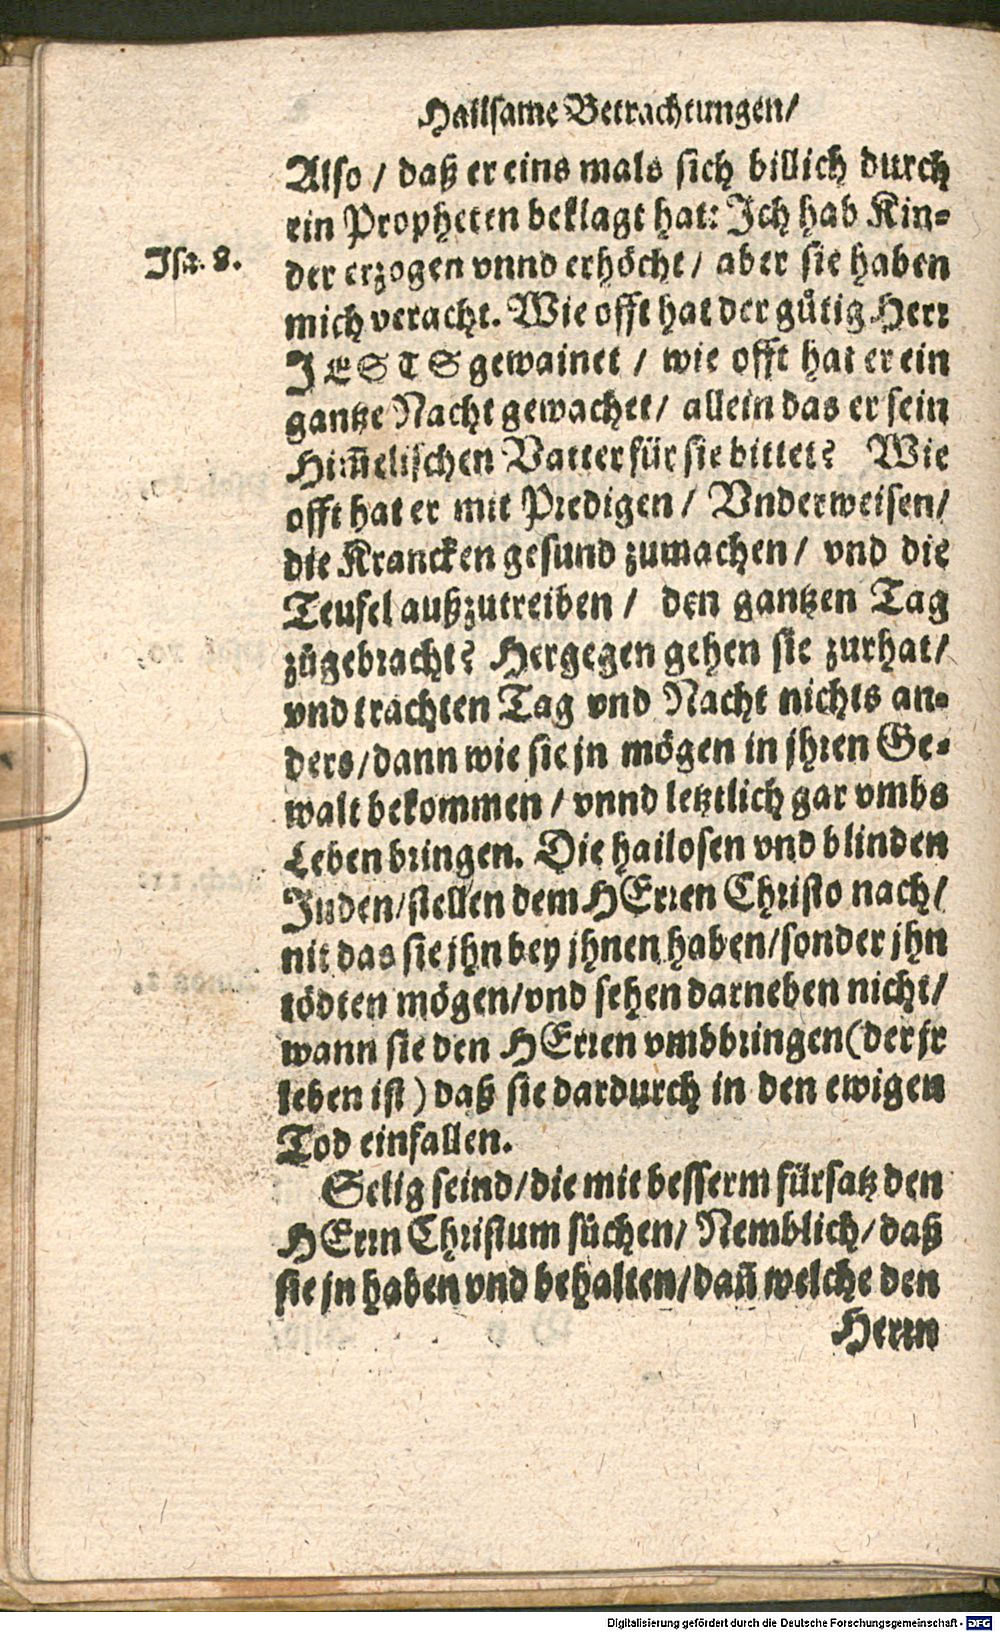 Hailsame Betrachtungen/
Also / daß er eins mals sich billich durch
ein Propheten beklagt hat: Ich hab Kin-
Isa. 8.
der erzogen vnnd erhöcht / aber sie haben
mich veracht. Wie offt hat der gůtig Herr
JESTS gewainet / wie offt hat er ein
gantze Nacht gewachet / allein das er sein
Him̃elischen Vatter für sie bittet? Wie
offt hat er mit Predigen / Vnderweisen/
die Krancken gesund zumachen / vnd die
Teufel außzutreiben / den gantzen Tag
zůgebracht? Hergegen gehen sie zurhat/
vnd trachten Tag vnd Nacht nichts an-
ders/dann wie sie jn mögen in jhren Ge-
walt bekommen / vnnd letztlich gar vmbs
Leben bringen. Die hailosen vnd blinden
Juden/stellen dem HErren Christo nach/
nit das sie jhn bey jhnen haben/sonder jhn
tödten mögen/vnd sehen darneben nicht/
wann sie den HErren vmbbringen(der jr
leben ist) daß sie dardurch in den ewigen
Tod einfallen.
Selig seind/die mit besserm fürsatz den
HErrn Christum sůchen/ Nemblich/daß
sie jn haben vnd behalten/dañ welche den
Herrn
Digitalisierung gefördert durch die Deutsche Forschungsgemeinschaft - DFG